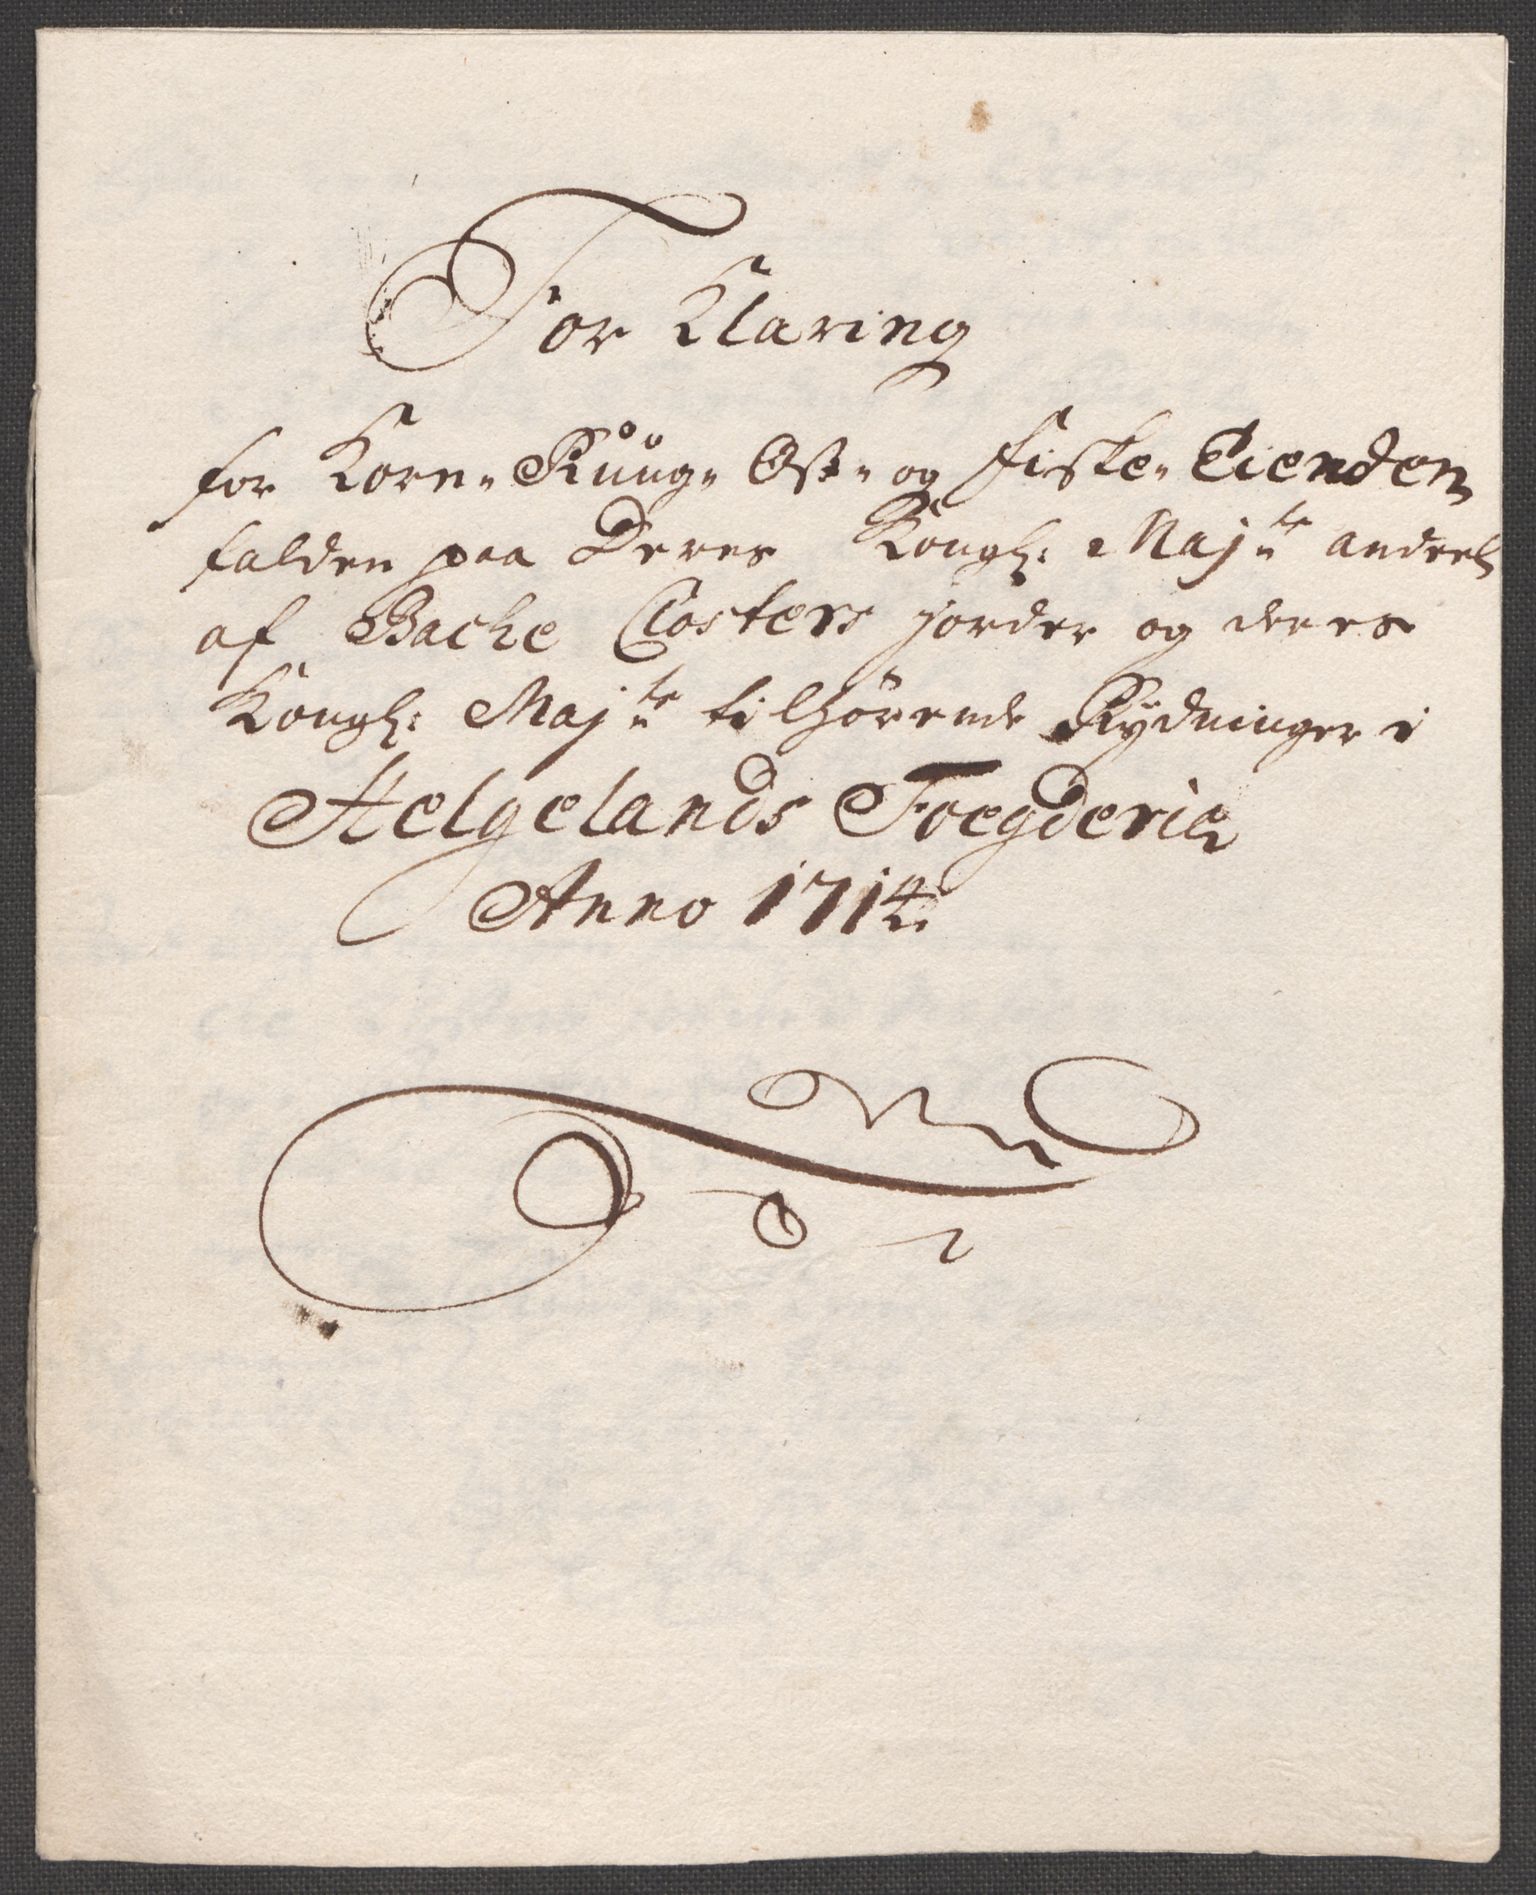 For Klaring
for Korn- Ruug- Ost- og Fiske- Tienden
falden paa Deres Kongl: Majts andeel
af Backe Closters jorder og deres
Kongl: Majts tilhørende Rydninger i
Helgelands Foegderie
Anno 1714.